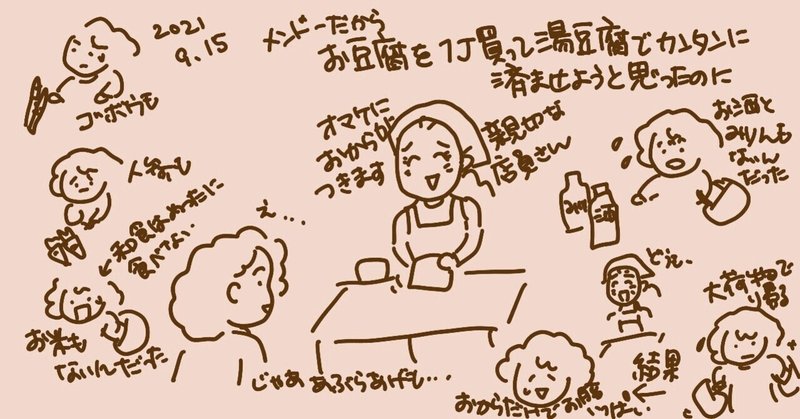 2021
9.15
メンドーだから
お豆腐を1丁買って湯豆腐でカンタンに
済ませようと思ったのに
オマケに
おからが
つきます
親切な
店員さん
え…
じゃああぶらあげも…
ゴボウも
人参も
和食はめったに
食べない
お米も
ないんだった
お酒と
みりんも
ないん
だった
みりん
酒
大荷物で
帰る
結果
おからだけでお腹
いっぱい